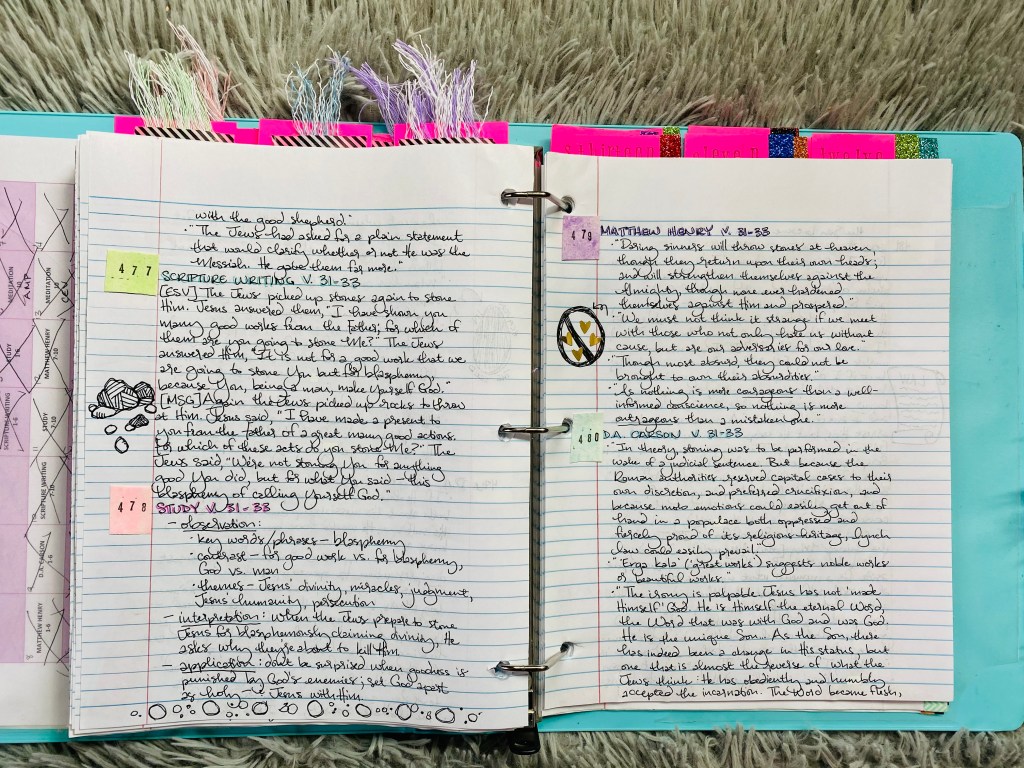 MEDITATION
AMP
MEDITATION
STUDY
1-6
MATTHEW HENRY
7-10
SCRIPTURE WRITING
1-6
STUDY
7-10
SCRIPTURE WRITING
7-10
D.A. CARSON
1-6
MATTHEW HENRY
1-6
with the good shepherd."
• "The Jews had asked for a plain statement
that would clarify whether or not He was the
Messiah. He gave them far more."
477
SCRIPTURE WRITING V. 31-33
[ESV] The Jews picked up stones again to stone
Him. Jesus answered them, "I have shown you
many good works from the Father; for which of
them are you going to stone Me?" The Jews
answered Him, "It is not for a good work that we
are going to stone You but for blasphemy,
because You, being a man, make Yourself God."
[MSG] Again the Jews picked up rocks to throw
at Him. Jesus said, "I have made a present to
you from the Father of a great many good actions.
For which of these acts do you stone Me?" The
Jews said, "We're not stoning You for anything
good You did, but for what You said – this
blasphemy of calling Yourself God."
478
STUDY V. 31-33
– observation:
• key words/phrases – blasphemy
• contrast – for good work vs. for blasphemy,
God vs. man
• themes – Jesus' divinity, miracles, judgment,
Jesus' humanity, persecution
– interpretation: when the Jews prepare to stone
Jesus for blasphemously claiming divinity, He
asks why they're about to kill Him
– application: don't be surprised when goodness is
punished by God's enemies; set God apart
as holy → Jesus with Him
479
MATTHEW HENRY V. 31-33
• "Daring sinners will throw stones at heaven,
though they return upon their own heads;
and will strengthen themselves against the
Almighty, though none ever hardened
themselves against Him and prospered."
• "We must not think it strange if we meet
with those who not only hate us without
cause, but are our adversaries for our love."
• "Though most absurd, they could not be
brought to own their absurdities."
• "As nothing is more courageous than a well-
informed conscience, so nothing is more
outrageous than a mistaken one."
480
D.A. CARSON V. 31-33
• "In theory, stoning was to be performed in the
wake of a judicial sentence. But because the
Roman authorities reserved capital cases to their
own discretion, and preferred crucifixion, and
because mob emotions could easily get out of
hand in a populace both oppressed and
fiercely proud of its religious heritage, lynch
law could easily prevail."
• "Erga kala ('great works') suggests noble works
or beautiful works."
• "The irony is palpable. Jesus has not 'made
Himself' God. He is Himself the eternal Word,
the Word that was with God and was God.
He is the unique Son... As the Son, there
has indeed been a change in His status, but
one that is almost the reverse of what the
Jews think: He has obediently and humbly
accepted the incarnation. The Word became flesh,